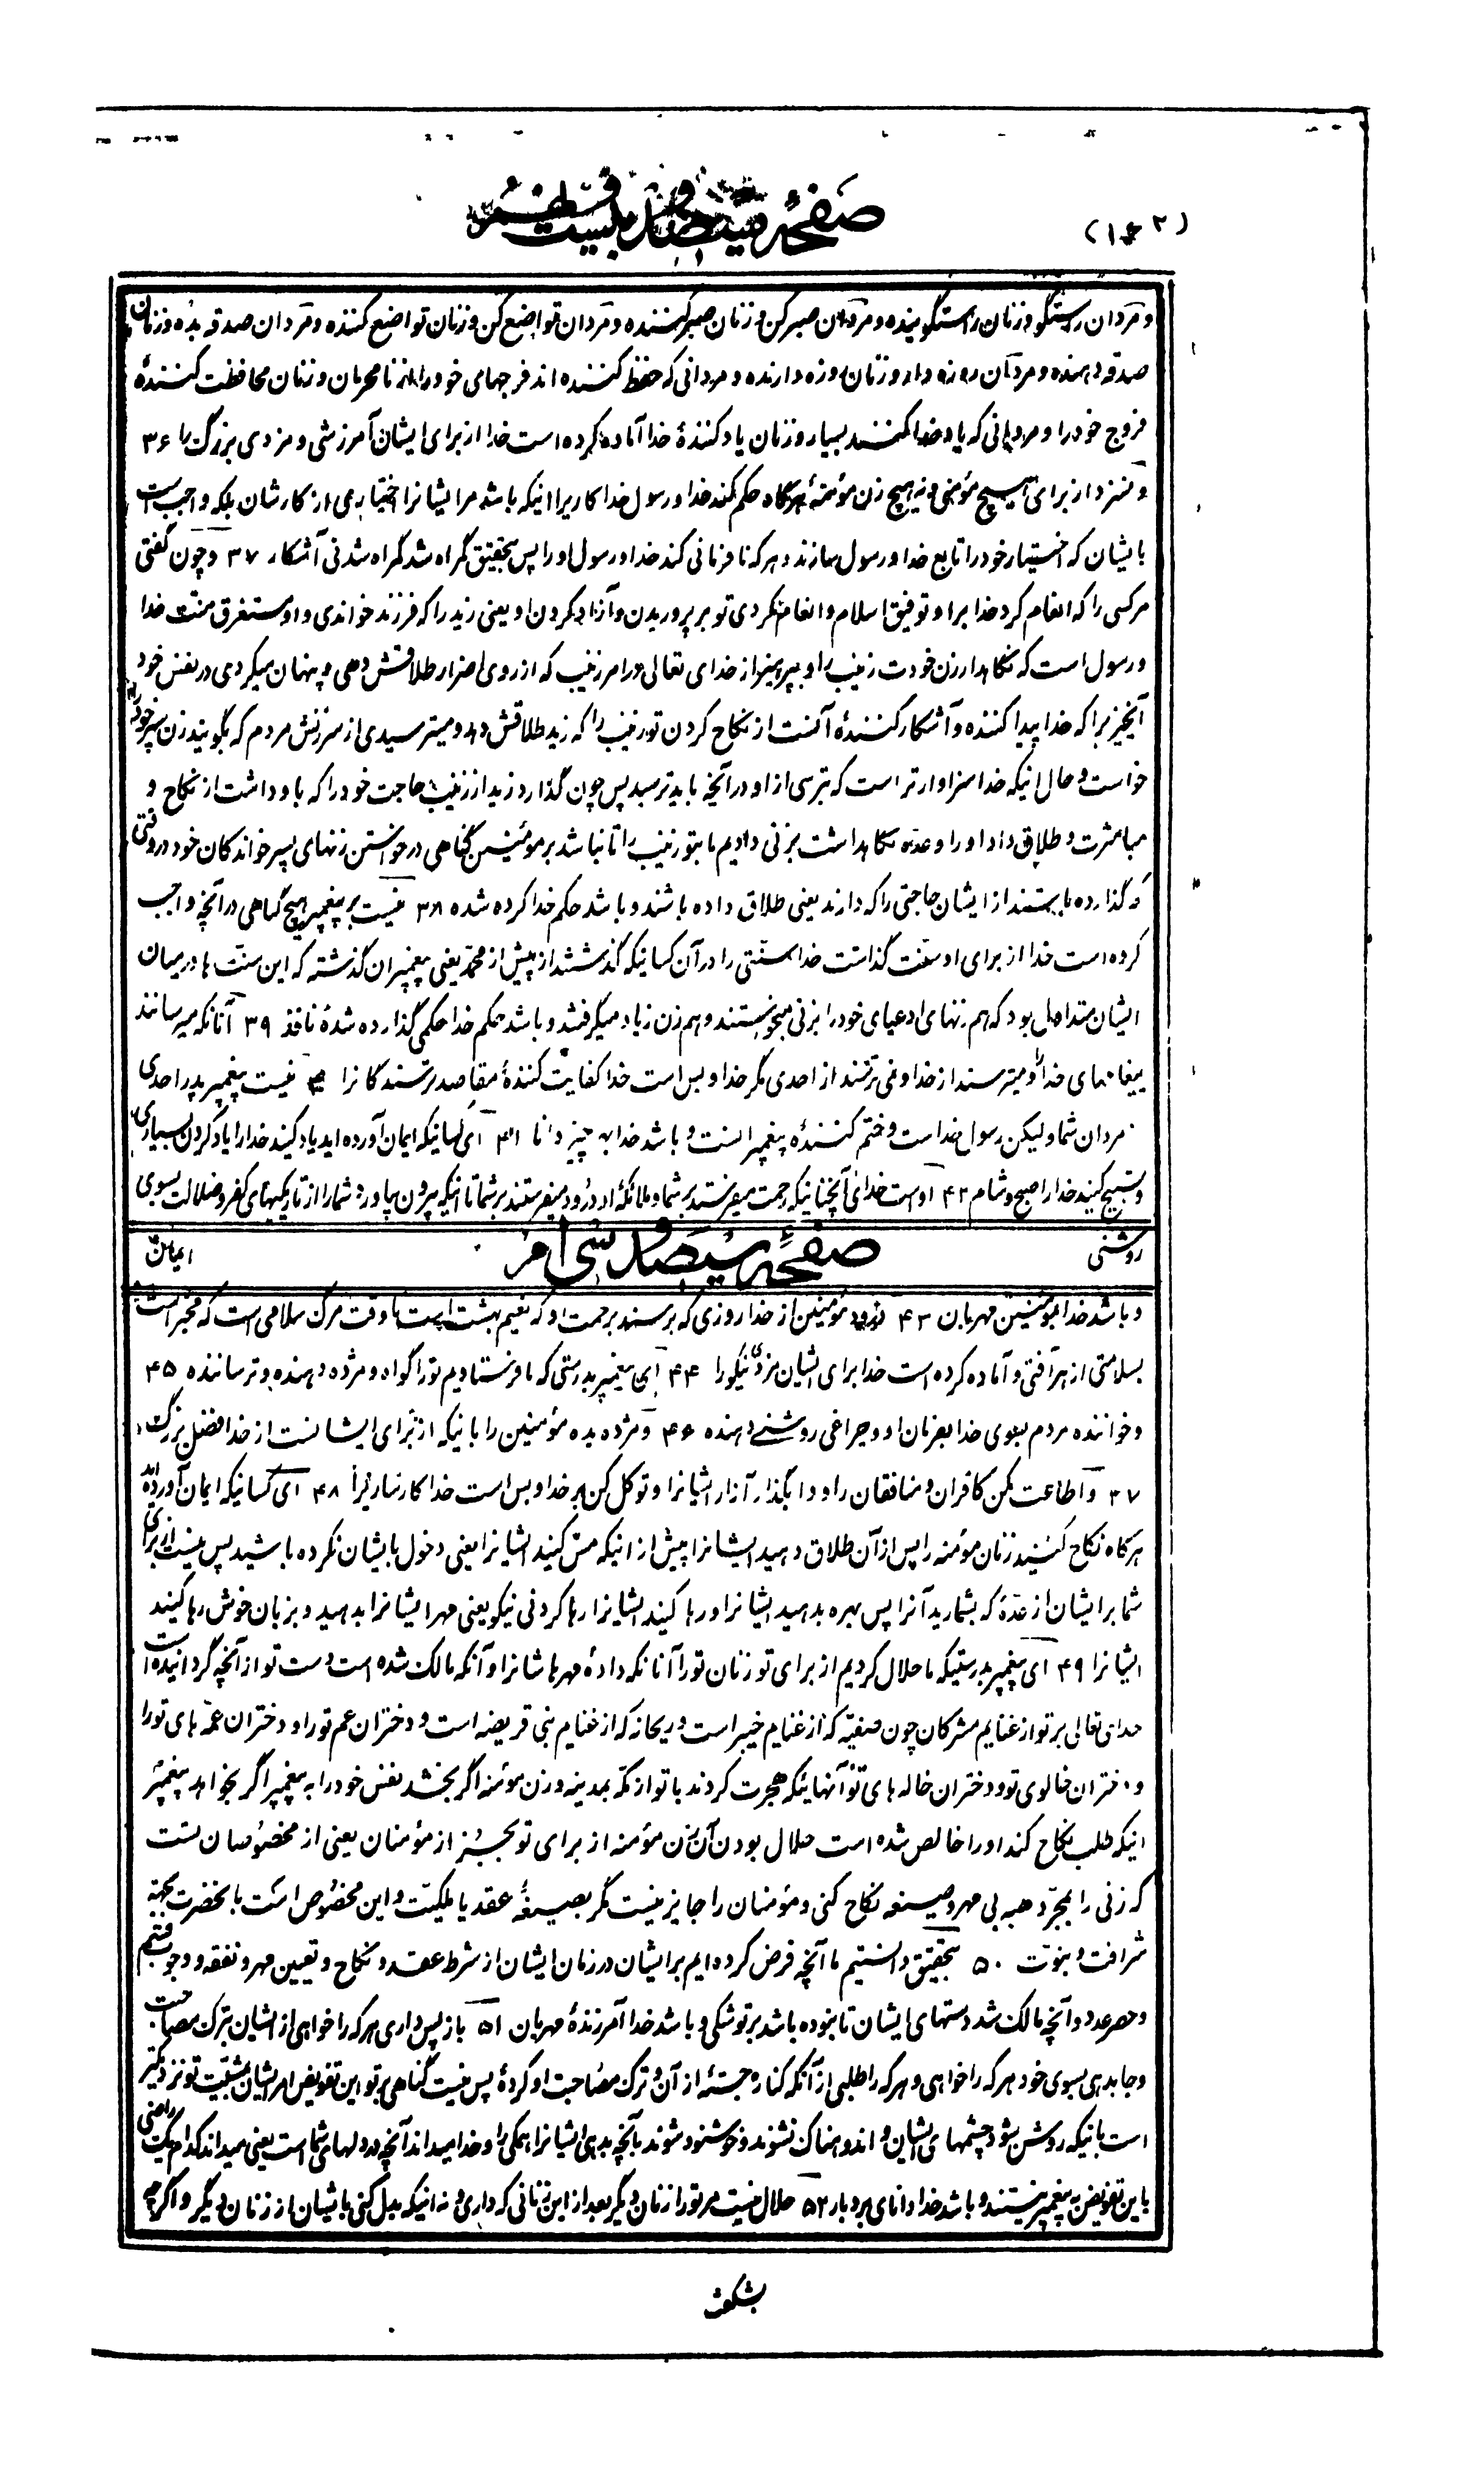 (۱۶۲)
صفحهٔ سیصد و بیست و نهم
و مردان راستگو و زنان راستگوینده و مردان صبر کن و زنان صبر کننده و مردان تواضع کن و زنان تواضع کننده و مردان صدقه بده و زنان
صدقه دهنده و مردان روزه دار و زنان روزه دارنده و مردانی که حفظ کننده اند فرجهای خود را از نامحرمان و زنان محافظت کنندهٔ
فروج خود را و مردانی که یاد خدا کنند بسیار و زنان یاد کنندهٔ خدا آماده کرده است خدا از برای ایشان آمرزشی و مزدی بزرگ را ۳۶
و نسزد از برای هیچ مؤمنی و نه هیچ زن مؤمنهٔ هرگاه حکم کند خدا و رسول خدا کاریرا اینکه باشد مر ایشانرا اختیاری از کارشان بلکه واجب است
بایشان که اختیار خود را تابع خدا و رسول سازند و هر که نافرمانی کند خدا و رسول او را پس بتحقیق گمراه شد گمراه شدنی آشکار ۳۷ و چون گفتی
مر کسی را که انعام کرد خدا بر او توفیق اسلام و انعام کردی تو بر پروریدن و آزاد کردن او یعنی زید را که فرزند خواندی و او مستغرق منت خدا
و رسول است که نگاهدار زن خودت زینب را و بپرهیز از خدای تعالی در امر زینب که از روی اضرار طلاقش دهی و پنهان میکردی در نفس خود
آنچیز برا که خدا پیدا کننده و آشکار کنندهٔ آنست از نکاح کردن تو زینب را که زید طلاقش دهد و میترسیدی از سرزنش مردم که بگویند زن پسر خود را
خواست و حال اینکه خدا سزاوارتر است که بترسی از او در آنچه باید ترسید پس چون گذارد زید از زینب حاجت خود را که باو داشت از نکاح و
مباشرت و طلاق داد او را و عدّه نگاهداشت بزنی دادیم ما بتو زینب را تا نباشد بر مؤمنین گناهی در خواستن زنهای پسر خواندگان خود در وقتی
که گذارده بایستند از ایشان حاجتی را که دارند یعنی طلاق داده باشند و باشد حکم خدا کرده شده ۳۸ نیست بر پیغمبر هیچ گناهی در آنچه واجب
کرده است خدا از برای او سنّت گذاشت خدا سنّتی را در آن کسانیکه گذشتند از پیش از محمّد یعنی پیغمبران گذشته که این سنّت ها در میان
ایشان متداول بود که هم زنهای ادعیای خود را بزنی میخواستند و هم زن زیاد میگرفتند و باشد حکم خدا حکمی گذارده شدهٔ نافذ ۳۹ آنانکه میرسانند
پیغامهای خدا را و میترسند از خدا و نمی ترسند از احدی مگر خدا و بس است خدا کفایت کنندهٔ مقاصد ترسندگانرا ۴۰ نیست پیغمبر پدر احدی
مردان شما و لیکن رسول خداست و ختم کنندهٔ پیغمبرانست و باشد خدا به چیز دانا ۴۱ ای کسانیکه ایمان آورده اید یاد کنید خدا را یاد کردن بسیاری
و تسبیح کنید خدا را صبح و شام ۴۲ اوست خدای آنچنانیکه رحمت میفرستد بر شما و ملائکهٔ او درود میفرستند بر شما تا اینکه بیرون بیاورد شما را از تاریکیهای کفر و ضلالت بسوی
روشنی
صفحهٔ سیصد و سی ام
ایمان
و باشد خدا بمؤمنین مهربان ۴۳ درود مؤمنین از خدا روزی که برسند برحمت او که نعیم بهشت است یا وقت مرگ سلامی است که مخبر است
بسلامتی از هر آفتی و آماده کرده است خدا برای ایشان مزدی نیکو را ۴۴ ای پیغمبر بدرستی که ما فرستادیم تو را گواه و مژده دهنده و ترساننده ۴۵
و خواننده مردم بسوی خدا بفرمان او و چراغی روشنی دهنده ۴۶ و مژده بده مؤمنین را بانیکه از برای ایشانست از خدا فضل بزرگ
۴۷ و اطاعت مکن کافران و منافقان را و واگذار آزار ایشانرا و توکل کن بر خدا و بس است خدا کارساز ترا ۴۸ ای کسانیکه ایمان آورده اید
هرگاه نکاح کنید زنان مؤمنه را پس از آن طلاق دهید ایشانرا پیش از اینکه مسّ کنید ایشانرا یعنی دخول بایشان نکرده باشید پس نیست از برای
شما بر ایشان از عدّهٔ که بشمارید آنرا پس بهره بدهید ایشانرا و رها کنید ایشانرا رها کردنی نیکو یعنی مهر ایشانرا بدهید و بزبان خوش رها کنید
ایشانرا ۴۹ ای پیغمبر بدرستیکه ما حلال کردیم از برای تو زنان تو را آنانکه دادهٔ مهرهاشانرا و آنکه مالک شده است دست تو از آنچه گردانیده است
خدای تعالی بر تو از غنایم مشرکان چون صفیّه که از غنایم خیبر است و ریحانه که از غنایم بنی قریضه است و دختران عم تو را و دختران عمّه های تو را
و دختران خالوی تو و دختران خاله های تو آنهائیکه هجرت کردند با تو از مکّه بمدینه و زن مؤمنه اگر بخشد نفس خود را به پیغمبر اگر بخواهد پیغمبر
اینکه طلب نکاح کند او را خالص شده است حلال بودن آن زن مؤمنه از برای تو بجز از مؤمنان یعنی از مخصوصان تست
که زنی را بمجرّد هبه بی مهر و صیغه نکاح کنی و مؤمنان را جایز نیست مگر بصیغهٔ عقد یا ملکیّت و این مخصوص است بآنحضرت بجهة
شرافت و نبوّت ۵۰ بتحقیق دانستیم ما آنچه فرض کرده ایم بر ایشان در زنان ایشان از شرط عقد و نکاح و تعیین مهر و نفقه و وجوب قسم
و حصر عدد و آنچه مالک شد دستهای ایشان تا نبوده باشد بر تو تنگی و باشد خدا آمرزندهٔ مهربان ۵۱ باز پس داری هر که را خواهی از ایشان بترک مصاحبت
و جا بدهی بسوی خود هر که را خواهی و هر که را طلبی از آنکه کناره جستهٔ از آن و ترک مصاحبت او کردهٔ پس نیست گناهی بر تو این تفویض امر ایشان بمشیّت تو نزدیکتر
است بانیکه روشن شود چشمهای ایشان و اندوهناک نشوند و خوشنود شوند بآنچه بدهی ایشانرا همگی را و خدا میداند آنچه در دلهای شما است یعنی میداند کدام یک راضی
باین تفویض به پیغمبر نیستند و باشد خدا دانای بردبار ۵۲ حلال نیست مر تو را زنان دیگر بعد از این زنانی که داری و نه اینکه بدل کنی بایشان از زنان دیگر و اگر چه
بشگفت